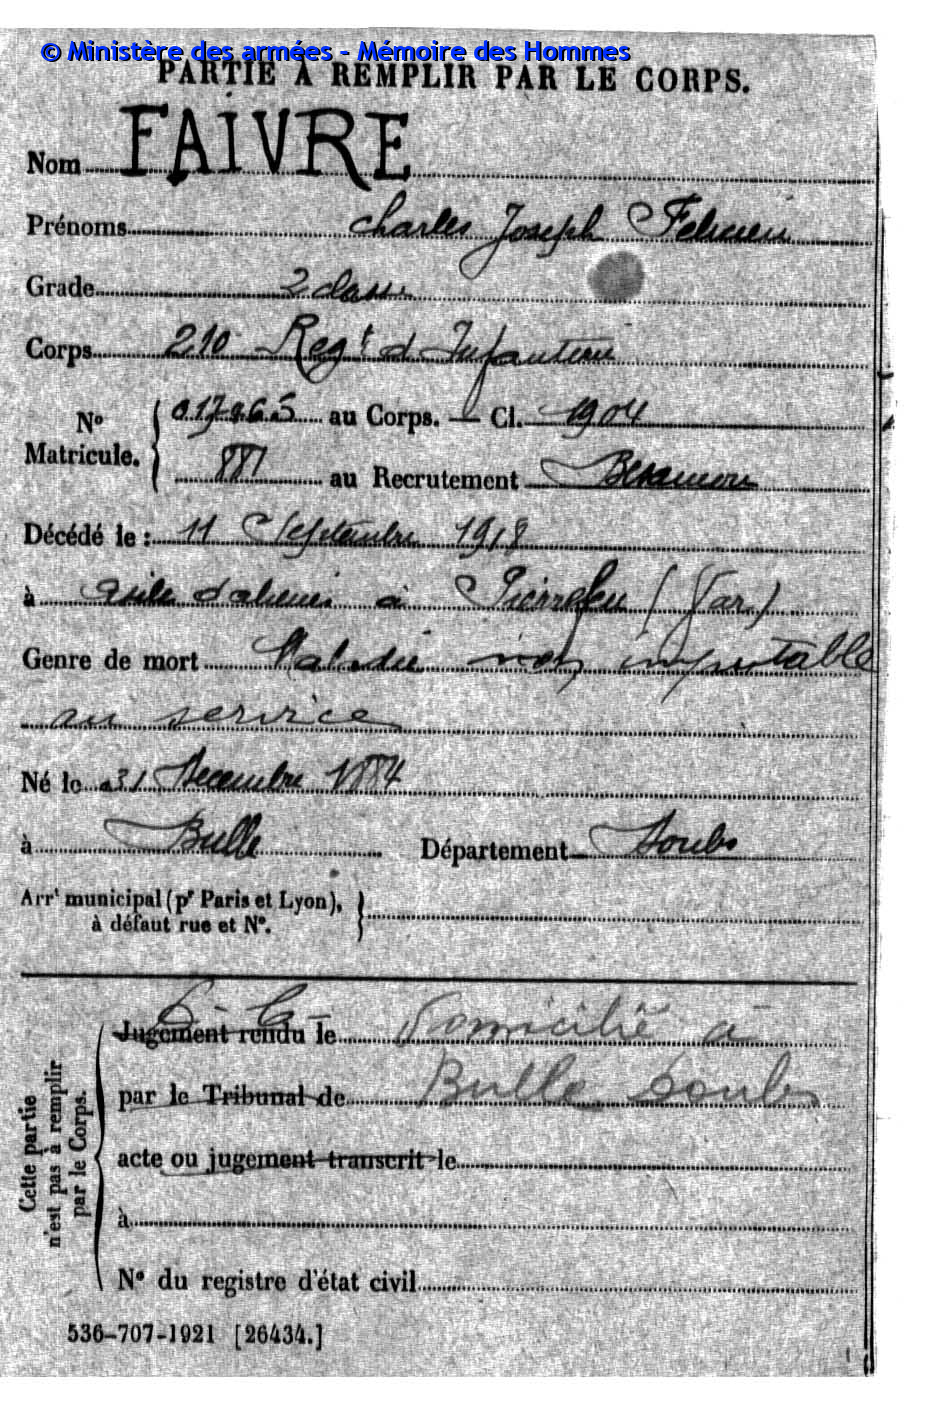 © Ministère des armées - Mémoire des Hommes
PARTIE À REMPLIR PAR LE CORPS.
Nom FAIVRE
Prénoms Charles Joseph Félicien
Grade 2 classe
Corps 210 Regt d'Infanterie
No Matricule. 017965 au Corps. — Cl. 1904
881 au Recrutement Besançon
Décédé le : 11 Septembre 1918
à asile d'aliénés à Pierrefeu (Var)
Genre de mort Maladie non imputable
au service
Né le 31 Decembre 1884
à Bulle Département Doubs
Arrt municipal (pr Paris et Lyon),
à défaut rue et No.
Cette partie
n'est pas à remplir
par le Corps.
Jugement rendu le Domicilié à
par le Tribunal de Bulle Doubs
acte ou jugement transcrit le
à
No du registre d'état civil
536-707-1921 [26434.]